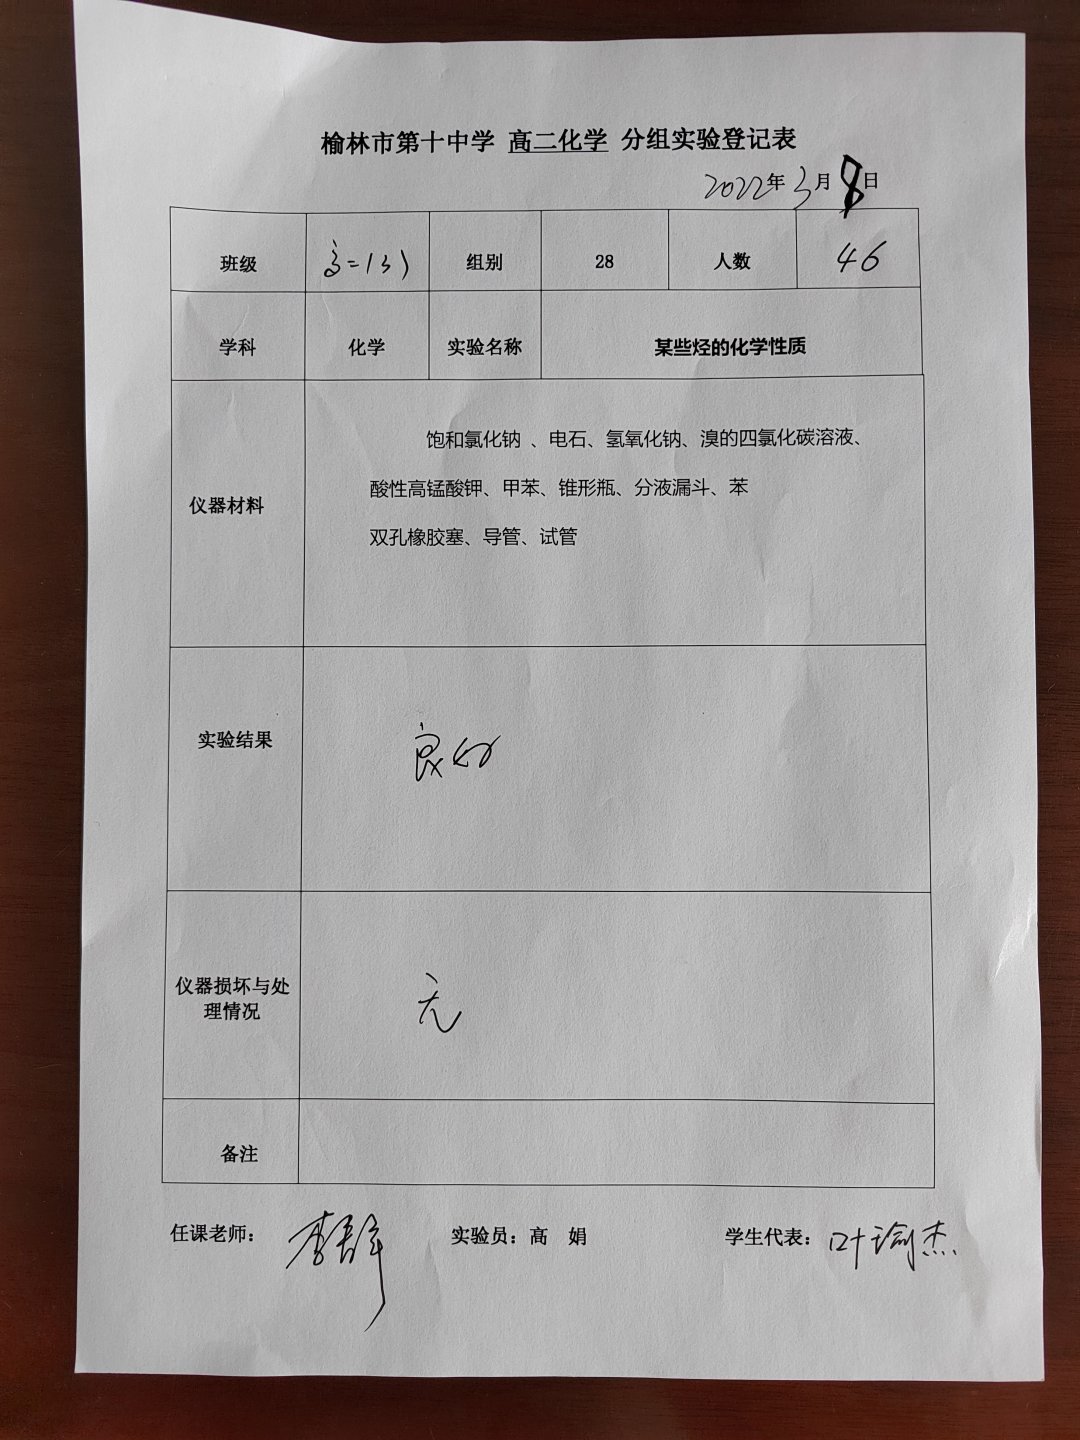 榆林市第十中学 高二化学 分组实验登记表
2022年3月8日
班级 高二(3) 组别 28 人数 46
学科 化学 实验名称 某些烃的化学性质
仪器材料
饱和氯化钠 、电石、氢氧化钠、溴的四氯化碳溶液、
酸性高锰酸钾、甲苯、锥形瓶、分液漏斗、苯
双孔橡胶塞、导管、试管
实验结果 良好
仪器损坏与处
理情况
无
备注
任课老师： 李 实验员：高 娟 学生代表：叶瑜杰